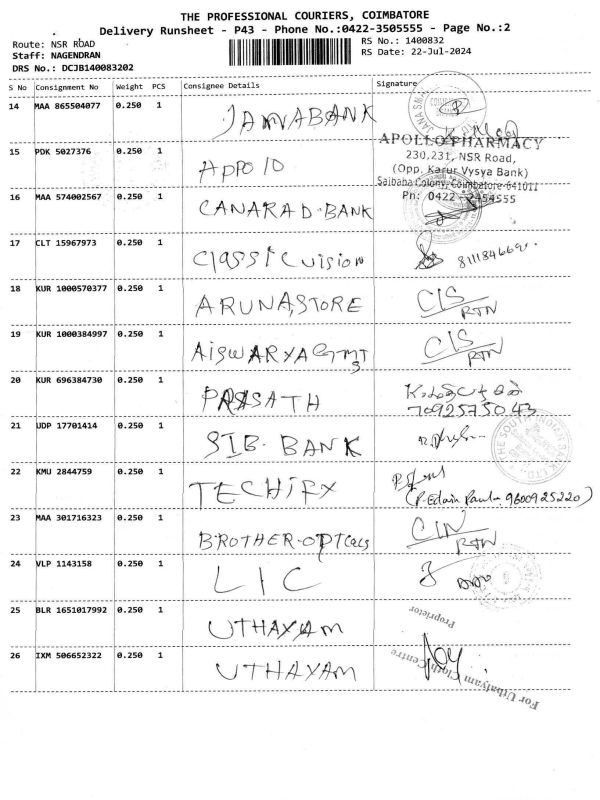 THE PROFESSIONAL COURIERS, COIMBATORE
Delivery Runsheet - P43 - Phone No.:0422-3505555 - Page No.:2
Route: NSR ROAD
Staff: NAGENDRAN
DRS No.: DCJB140083202
RS No.: 1400832
RS Date: 22-Jul-2024
S No Consignment No Weight PCS Consignee Details Signature
14 MAA 865504077 0.250 1 JANABANK
15 PDK 5027376 0.250 1 APPOLO
APOLLO PHARMACY
230,231, NSR Road,
(Opp. Karur Vysya Bank)
Saibaba Colony, Coimbatore-641011
Ph: 0422 - 2454555
16 MAA 574002567 0.250 1 CANARAD-BANK
17 CLT 15967973 0.250 1 Classic vision
18 KUR 1000570377 0.250 1 ARUNASTORE C/S RTN
19 KUR 1000384997 0.250 1 AISWARYA GMTS C/S RTN
20 KUR 696384730 0.250 1 PRASATH
7092575043
21 UDP 17701414 0.250 1 SIB. BANK
22 KMU 2844759 0.250 1 TECHIFX
(P. Edwin Paul - 9600925220)
23 MAA 301716323 0.250 1 BROTHER-OPTICALS C/N RTN
24 VLP 1143158 0.250 1 LIC
25 BLR 1651017992 0.250 1 UTHAYAM
Proprietor
26 IXM 506652322 0.250 1 UTHAYAM
For Uthaiyam Cloth Centre